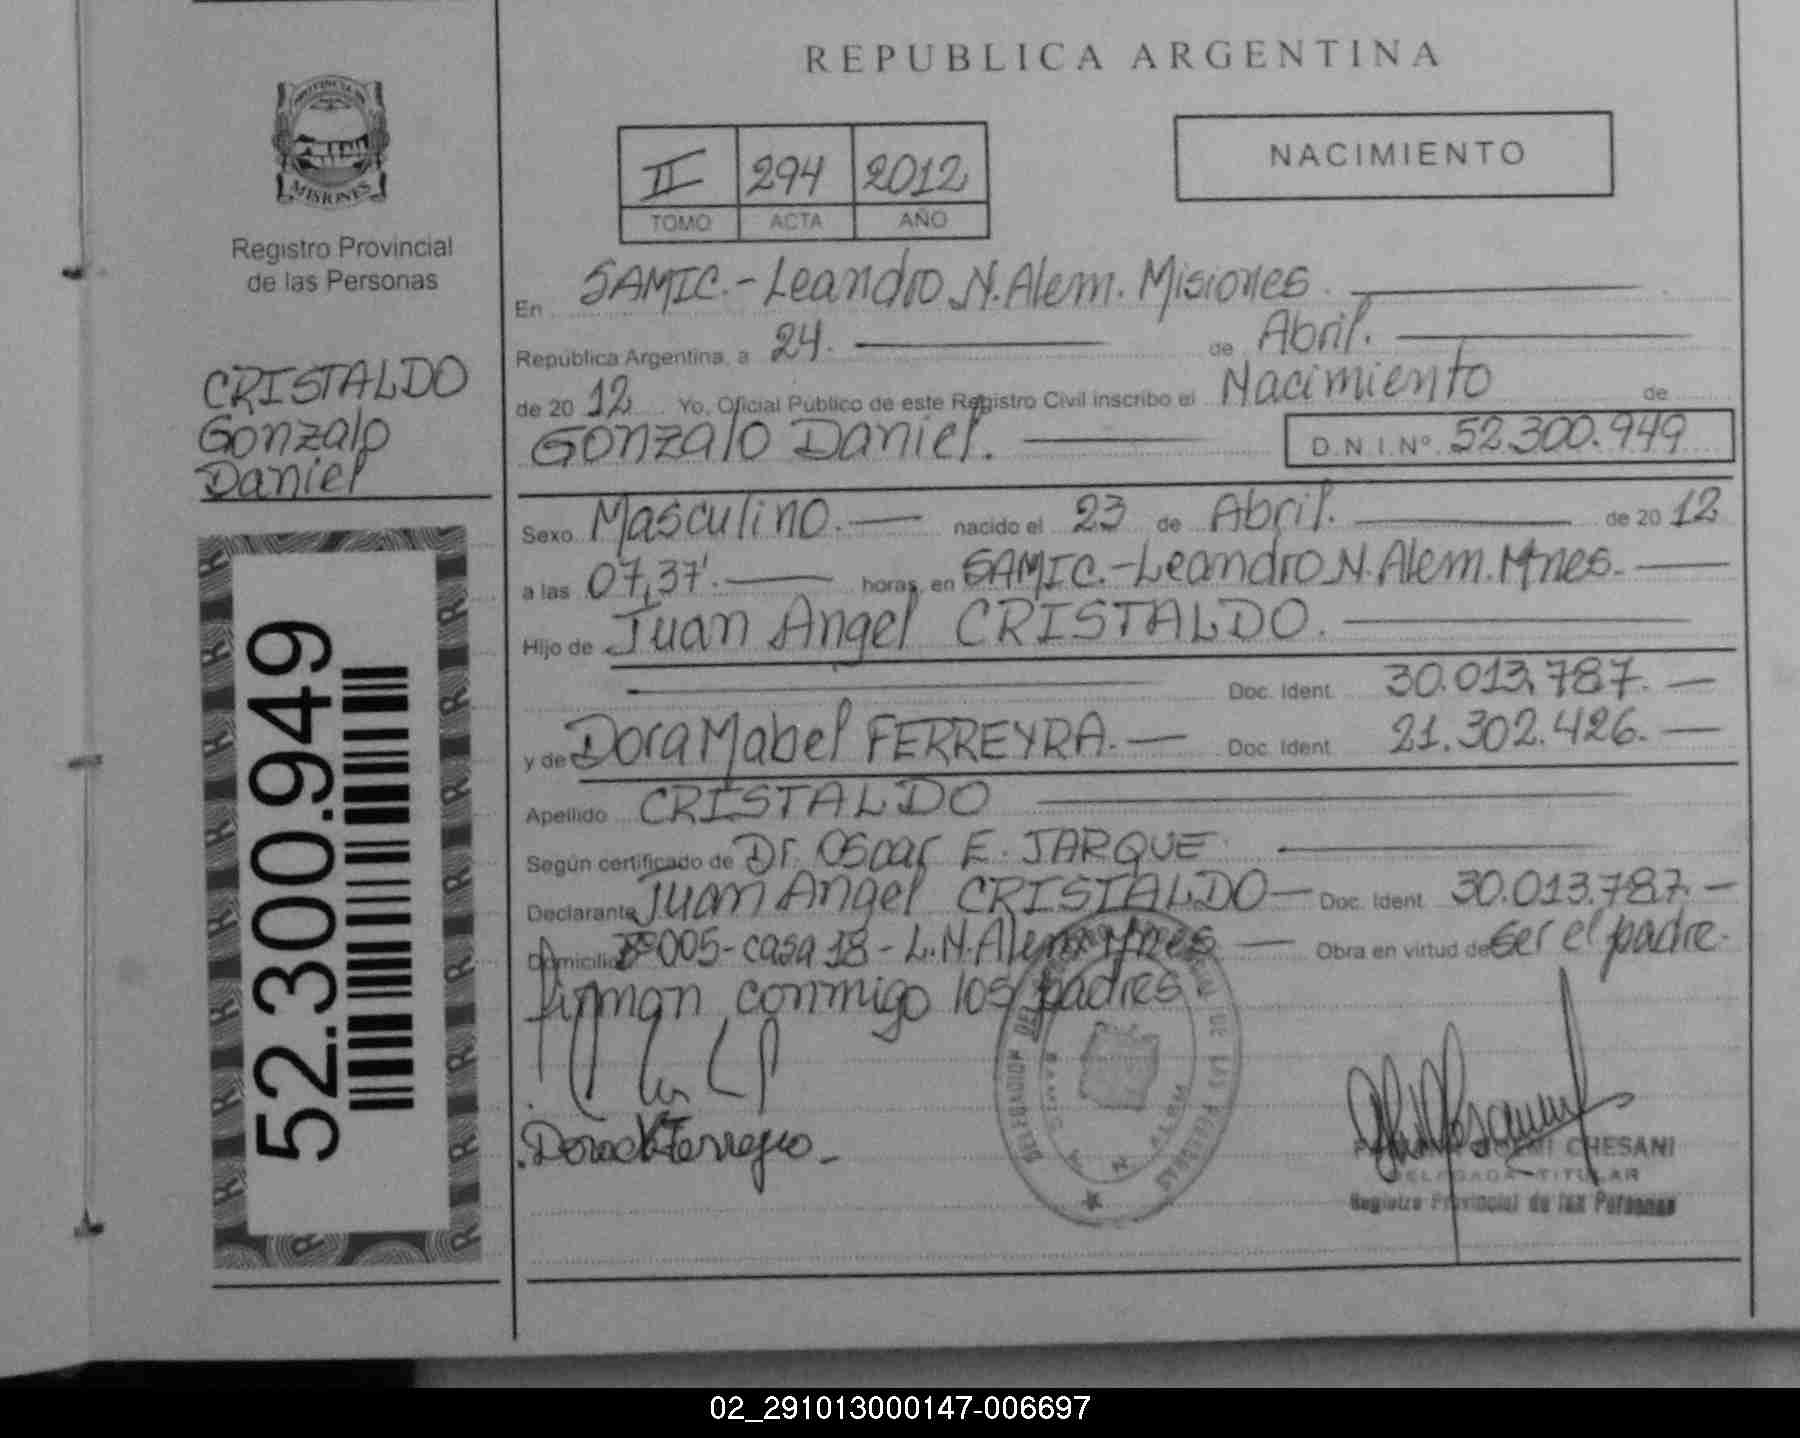 REPUBLICA ARGENTINA
PROVINCIA DE
MISIONES
Registro Provincial
de las Personas
II 294 2012
TOMO ACTA AÑO
NACIMIENTO
CRISTALDO
Gonzalo
Daniel
52.300.949
En SAMIC.-Leandro N. Alem. Misiones.
República Argentina, a 24. de Abril.
de 20 12 Yo, Oficial Público de este Registro Civil inscribo el Nacimiento de
Gonzalo Daniel. D.N.I.Nº 52.300.949
Sexo Masculino. nacido el 23 de Abril. de 20 12
a las 07,37'. horas, en SAMIC.-Leandro N. Alem. Mnes.
Hijo de Juan Angel CRISTALDO.
Doc. Ident. 30.013.787.
y de Dora Mabel FERREYRA. Doc. Ident. 21.302.426.
Apellido CRISTALDO
Según certificado de Dr. Oscar E. JARQUE
Declarante Juan Angel CRISTALDO Doc. Ident. 30.013.787.
Domicilio Bº 005-casa 18-L.N.Alem Mnes Obra en virtud de ser el padre.
firman conmigo los padres.
DELEGACION DEL REGISTRO PROVINCIAL DE LAS PERSONAS
CHESANI
DELEGADA TITULAR
Registro Provincial de las Personas
02_291013000147-006697